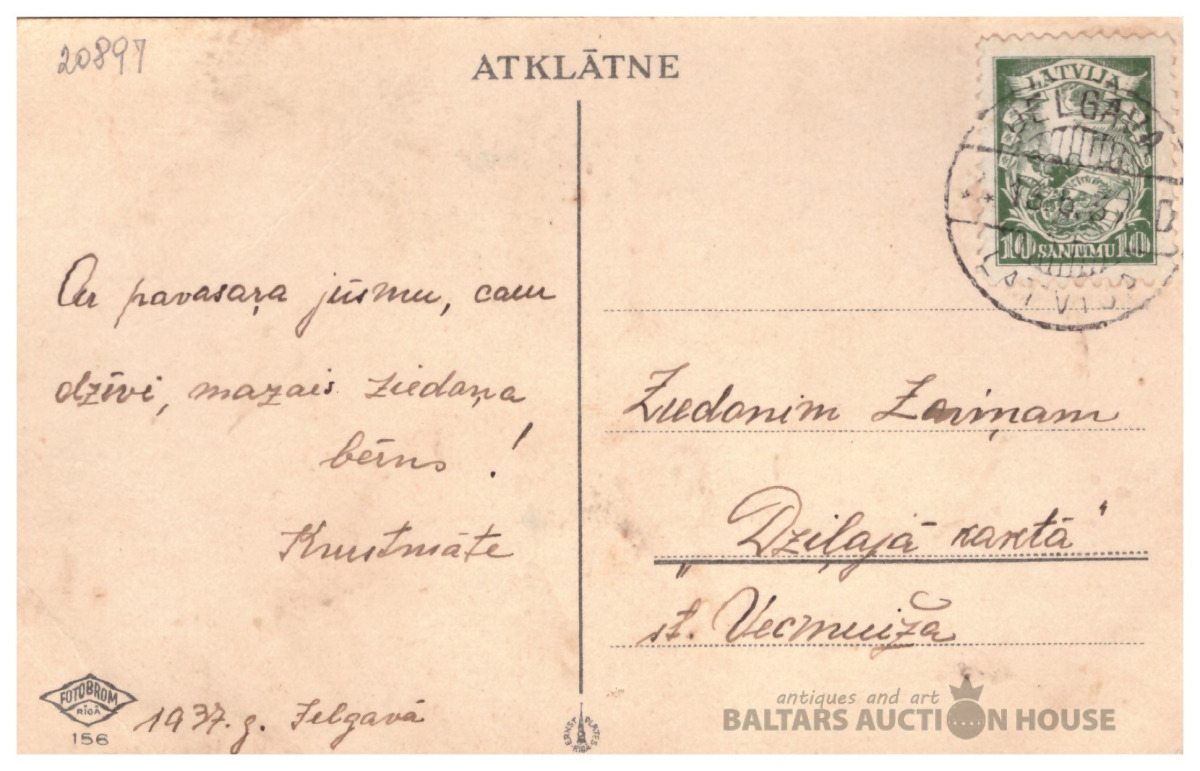 20897
ATKLĀTNE
LATVIJA
10 SANTIMU 10
JELGAVA
LATVIJA
Ar pavasaŗa jūsmu, caur
dzīvi, mazais ziedoņa
bērns!
Krustmāte
1937. g. Jelgavā
Ziedonim Zariņam
„Dziļajā kaktā"
st. Vecmuiža
FOTOBROM
RĪGA
156
ERNST PLATES
RĪGA
antiques and art
BALTARS AUCTION HOUSE